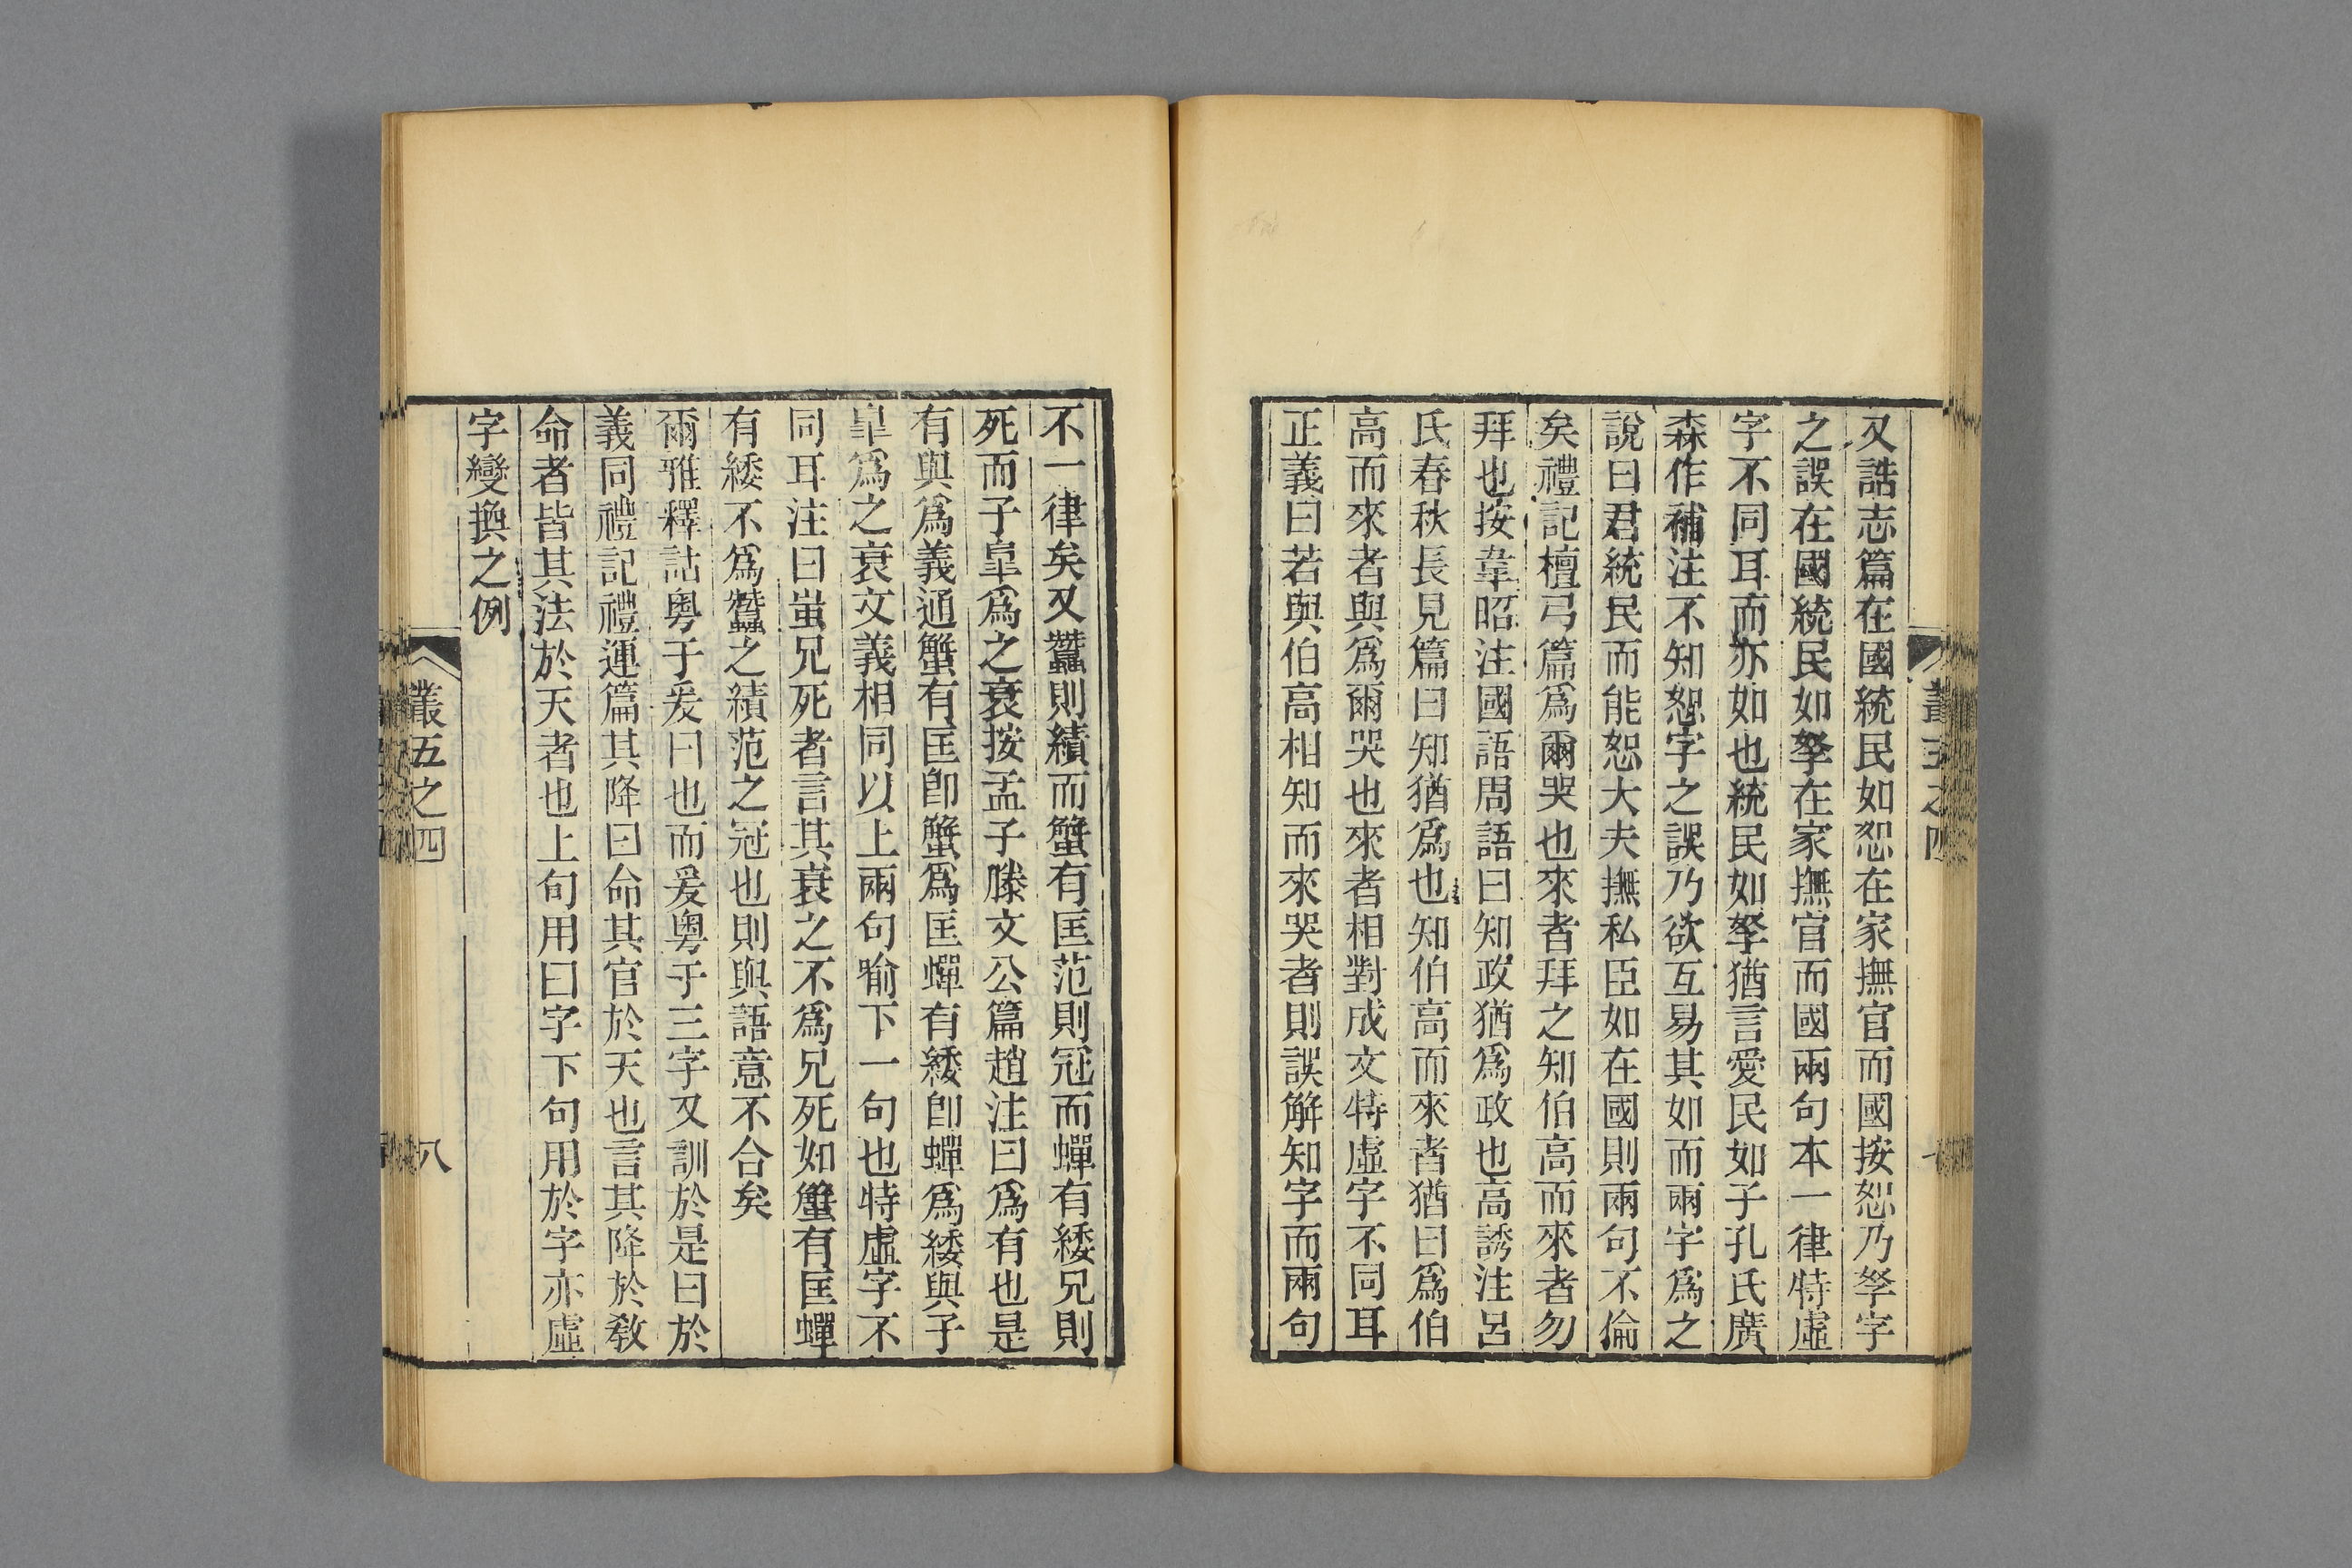 又誥志篇在國統民如恕在家撫官而國按恕乃孥字
之誤在國統民如孥在家撫官而國兩句本一律特虛
字不同耳而亦如也統民如孥猶言愛民如子孔氏廣
森作補注不知恕字之誤乃欲互易其如而兩字爲之
說曰君統民而能恕大夫撫私臣如在國則兩句不倫
矣禮記檀弓篇爲爾哭也來者拜之知伯高而來者勿
拜也按韋昭注國語周語曰知政猶爲政也高誘注呂
氏春秋長見篇曰知猶爲也知伯高而來者猶曰爲伯
高而來者與爲爾哭也來者相對成文特虛字不同耳
正義曰若與伯高相知而來哭者則誤解知字而兩句
不一律矣又蠶則績而蟹有匡范則冠而蟬有緌兄則
死而子臯爲之衰按孟子滕文公篇趙注曰爲有也是
有與爲義通蟹有匡卽蟹爲匡蟬有緌卽蟬爲緌與子
臯爲之衰文義相同以上兩句喻下一句也特虛字不
同耳注曰蚩兄死者言其衰之不爲兄死如蟹有匡蟬
有緌不爲蠶之績范之冠也則與語意不合矣
爾雅釋詁粤于爰曰也而爰粤于三字又訓於是曰於
義同禮記禮運篇其降曰命其官於天也言其降於教
命者皆其法於天者也上句用曰字下句用於字亦虛
字變換之例
叢五之四
八